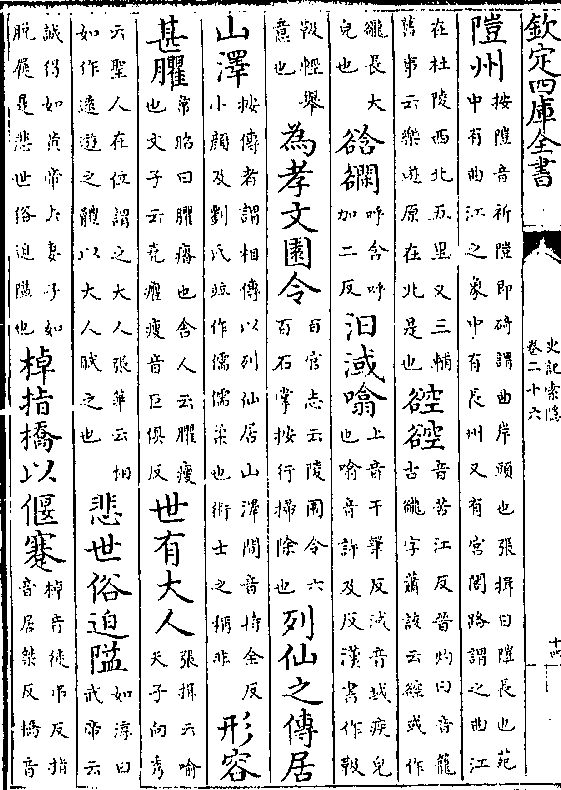 欽定四庫全書
史記索隱
卷二十六
十四
隑州按隑音祈隑即碕謂曲岸頭也張揖曰隑長也苑中有曲江之象中有長州又有宮閣路謂之曲江
在杜陵西北五里又三輔舊事云樂遊原在北是也谾谾音苦江反晉灼曰音籠古巄字蕭該云谾或作
巄長大皃也谽𧯆呼含呼加二反汩淢噏上音于筆反淢音域疾皃也噏音許及反漢書作靸
靸輕舉意也為孝文園令百官志云陵園令六百石掌按行掃除也列仙之傳居
山澤按傳者謂相傳以列仙居山澤間音持全反小顔及劉氏竝作儒儒柔也術士之稱非形容
甚臞韋昭曰臞瘠也舍人云臞瘦也文子云堯癯瘦音巨俱反世有大人張揖云喻天子向秀
云聖人在位謂之大人張華云相如作遠遊之體以大人賦之也悲世俗迫隘如淳曰武帝云
誠得如黄帝去妻子如脫屣是悲世俗迫隘也棹指橋以偃蹇棹音徒弔反指音居桀反橋音